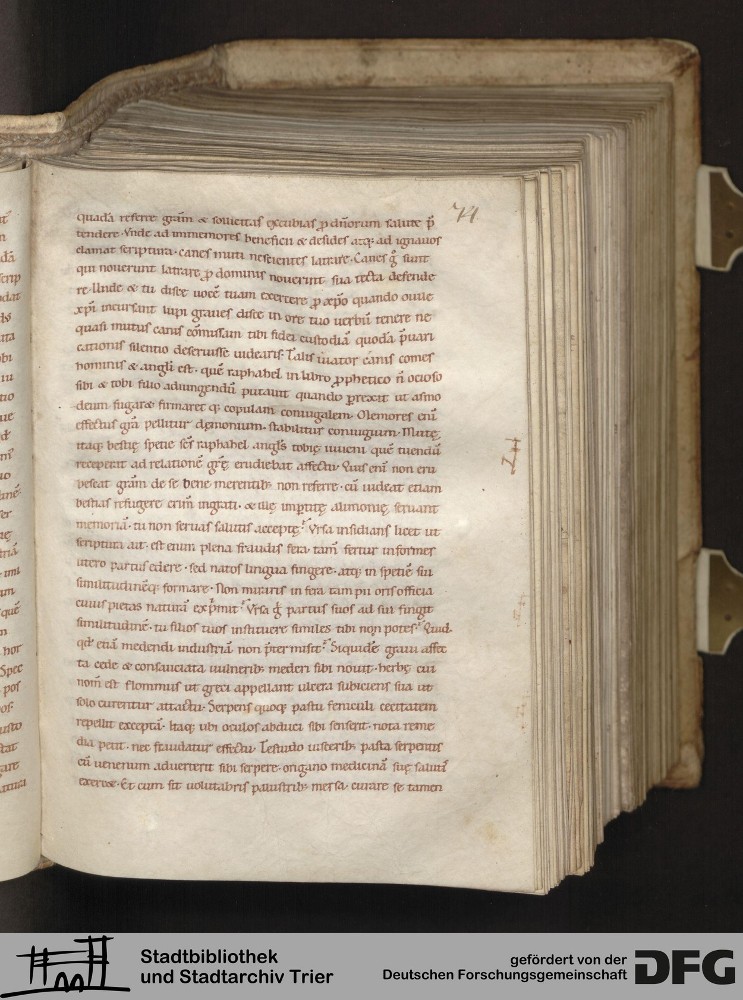 74
quadā referre grām & sollicitas excubias ꝓ dn̄orum salute p̄
tendere. Vnde ad immemores beneficii & desides atq; ad ignauos
clamat scriptura. canes muti nescientes latrare. Canes g̊ sunt
qui nouerunt latrare ꝓ dominis nouerunt sua tecta defende
re. Unde & tu disce uocē tuam exercere ꝓ xp̄o quando ouile
xp̄i incursant lupi graues disce in ore tuo uerbū tenere ne
quasi mutus canis cōmissam tibi fidei custodiā quodā p̄uari
cationis silentio deseruisse uidearis. Talis uiator canis comes
hominis & angli est. quē raphahel in libro ꝓphetico n̄ ocioso
sibi & tobi filio adiungendū putauit quando ꝓrexit ut asmo
deum fugaret firmaret q; copulam coniugalem. Memores enī
effectus grā pellitur demonium. stabilitur coniugium. Mutę
itaq; bestię spetie sc̄s raphahel angls tobię iuueni quē tuendū
receperat ad relationē grę̄ erudiebat affectū. Quis enī non eru
beseat grām de se bene merentib; non referre. cū uideat etiam
bestias refugere crim̄ ingrati. & illę imptitę alimonię seruant
memoriā. tu non seruas salutis acceptę? Vrsa insidians licet ut
scriptura ait. est enim plena fraudis fera. tam̄ fertur informes
utero partus edere. sed natos lingua fingere. atq; in spetiē sui
similitudinēq; formare. Non miraris in fera tam pii oris officia
cuius pietas naturā exp̄mit? Vrsa g̊ partus suos ad sui fingit
similitudinē. tu filios tuos instituere similes tibi non potes? Quid.
qd̄ etiā medendi industriā non p̄ter misit? Siquidē graui affec
ta cede & consauciata uulnerib; mederi sibi nouit. herbę cui
nom̄ est flommus ut greci appellant ulcera subiciens sua ut
solo curentur attactu. Serpens quoq; pastu feniculi cecitatem
repellit exceptā. Itaq; ubi oculos abduci sibi senserit. nota reme
dia petit. nec fraudatur effectu. Testudo uiscerib; pasta serpentis
cū uenenum aduerterit sibi serpere. origano medicinā suę saluti
exercet. Et cum sit uolutabris palustrib; mersa. curare se tamen
Stadtbibliothek
und Stadtarchiv Trier
gefördert von der
Deutschen Forschungsgemeinschaft
DFG